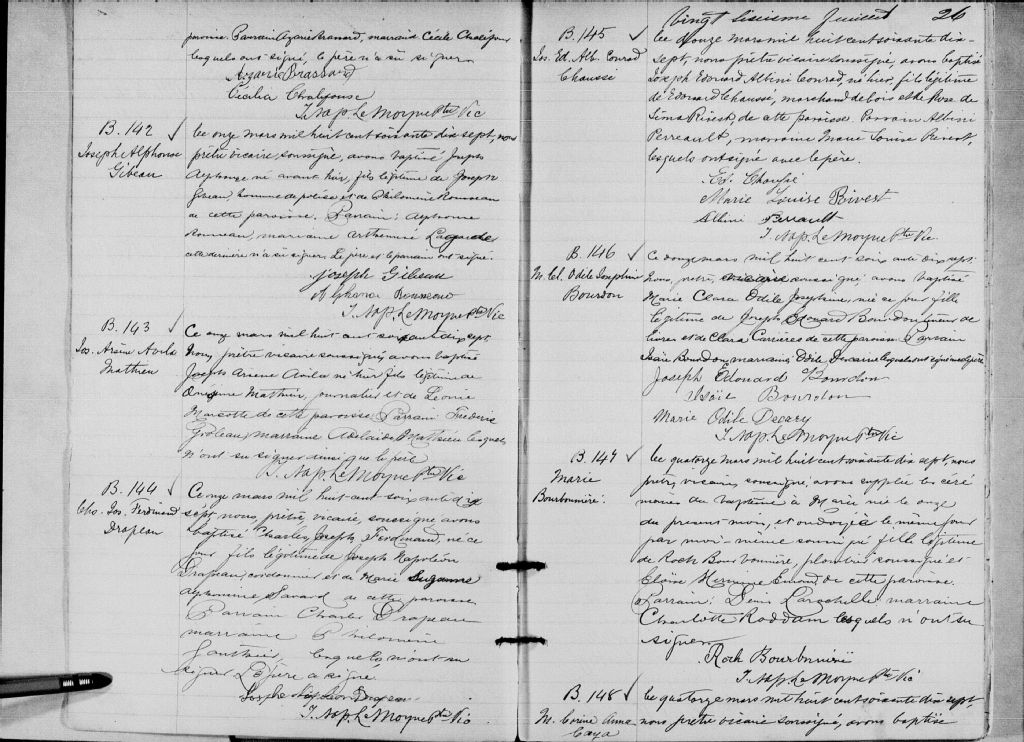 paroisse. Parrain Azarie Brassard, marraine Cécile Chalifoux
lesquels ont signé, le père n'a su signer
Azarie Brassard
Cécilia Chalifouse
J. Nap. LeMoyne Ptre Vic
B. 142
Joseph Alphonse
Gibeau
Le onze mars mil huit cent soixante dix sept, nous
prêtre vicaire, soussigné, avons baptisé Joseph
Alphonse né avant hier, fils légitime de Joseph
Gibeau, homme de police et de Philomène Rousseau
de cette paroisse. Parrain: Alphonse
Rousseau, marraine Arthémise
cette dernière n'a su signer. Le père et le parrain ont signé.
Joseph Gibeau
Alphonse Rousseau
J. Nap. LeMoyne Ptre Vic
B. 143
Jos. Arsène Avila
Mathieu
Ce onze mars mil huit cent soixante dix sept
Nous, prêtre vicaire soussigné, avons baptisé
Joseph Arsène Avila né hier fils légitime de
Mathieu, journalier et de Léonie
Marcotte de cette paroisse. Parrain Frédéric
Groleau, marraine Adélaïde Mathieu lesquels
n'ont su signer ainsi que le père
J. Nap. LeMoyne Ptre Vic
B. 144
Chs. Jos. Ferdinand
Drapeau
Ce onze mars mil huit cent soixante dix
sept nous, prêtre, vicaire, soussigné avons
baptisé Charles Joseph Ferdinand, né ce
jour fils légitime de Joseph Napoléon
Drapeau, cordonnier et de Marie Suzanne
Alphonsine Savard de cette paroisse
Parrain Charles Drapeau
marraine Philomène
Gauthier, lesquels n'ont su
signer. Le père a signé
Joseph Napoléon Drapeau
J. Nap. LeMoyne Ptre Vic
Vingt sixième feuillet 26
B. 145
Jos. Ed. Alb. Conrad
Chaussé
Le douze mars mil huit cent soixante dix
sept, nous prêtre vicaire soussigné, avons baptisé
Joseph Edouard Albini Conrad, né hier, fils légitime
de Edouard Chaussé, marchand de bois et de Rose de
Lima Rivest, de cette paroisse. Parrain Albini
Perreault, marraine Marie Louise Rivest,
lesquels ont signé avec le père.
Ed. Chaussé
Marie Louise Rivest
Albini Perrault
J. Nap. LeMoyne Ptre Vic.
B. 146
M. Cl. Odile Josephine
Bourdon
Ce douze mars mil huit cent soixante dix sept
Nous, prêtre, vicaire soussigné, avons baptisé
Marie Clara Odile Josephine, née ce jour fille
légitime de Joseph Edouard Bourdon teneur de
livres et de Clara Carrières de cette paroisse Parrain
Isaïe Bourdon, marraine Odile Decarie lesquels ont signé
Joseph Édouard Bourdon
Isaïe Bourdon
Marie Odile Decary
J. Nap. LeMoyne Ptre Vic
B. 147
Marie
Bourbonnière
Le quatorze mars mil huit cent soixante dix sept, nous
prêtre, vicaire, soussigné, avons supplée les céré
monies du baptême à Marie née le onze
du présent mois, et ondoyée le même jour
par moi-même soussigné fille légitime
de Roch Bourbonnière, plombier soussigné et
Eloïse Hermine Emond de cette paroisse.
Parrain: Denis Larochelle marraine
Charlotte Roddam lesquels n'ont su
signer
Roch Bourbonnière
J. Nap. LeMoyne Ptre Vic
B. 148
M. Corine Anna
Caya
Le quatorze mars mil huit cent soixante dix sept
nous prêtre vicaire soussigné, avons baptisé